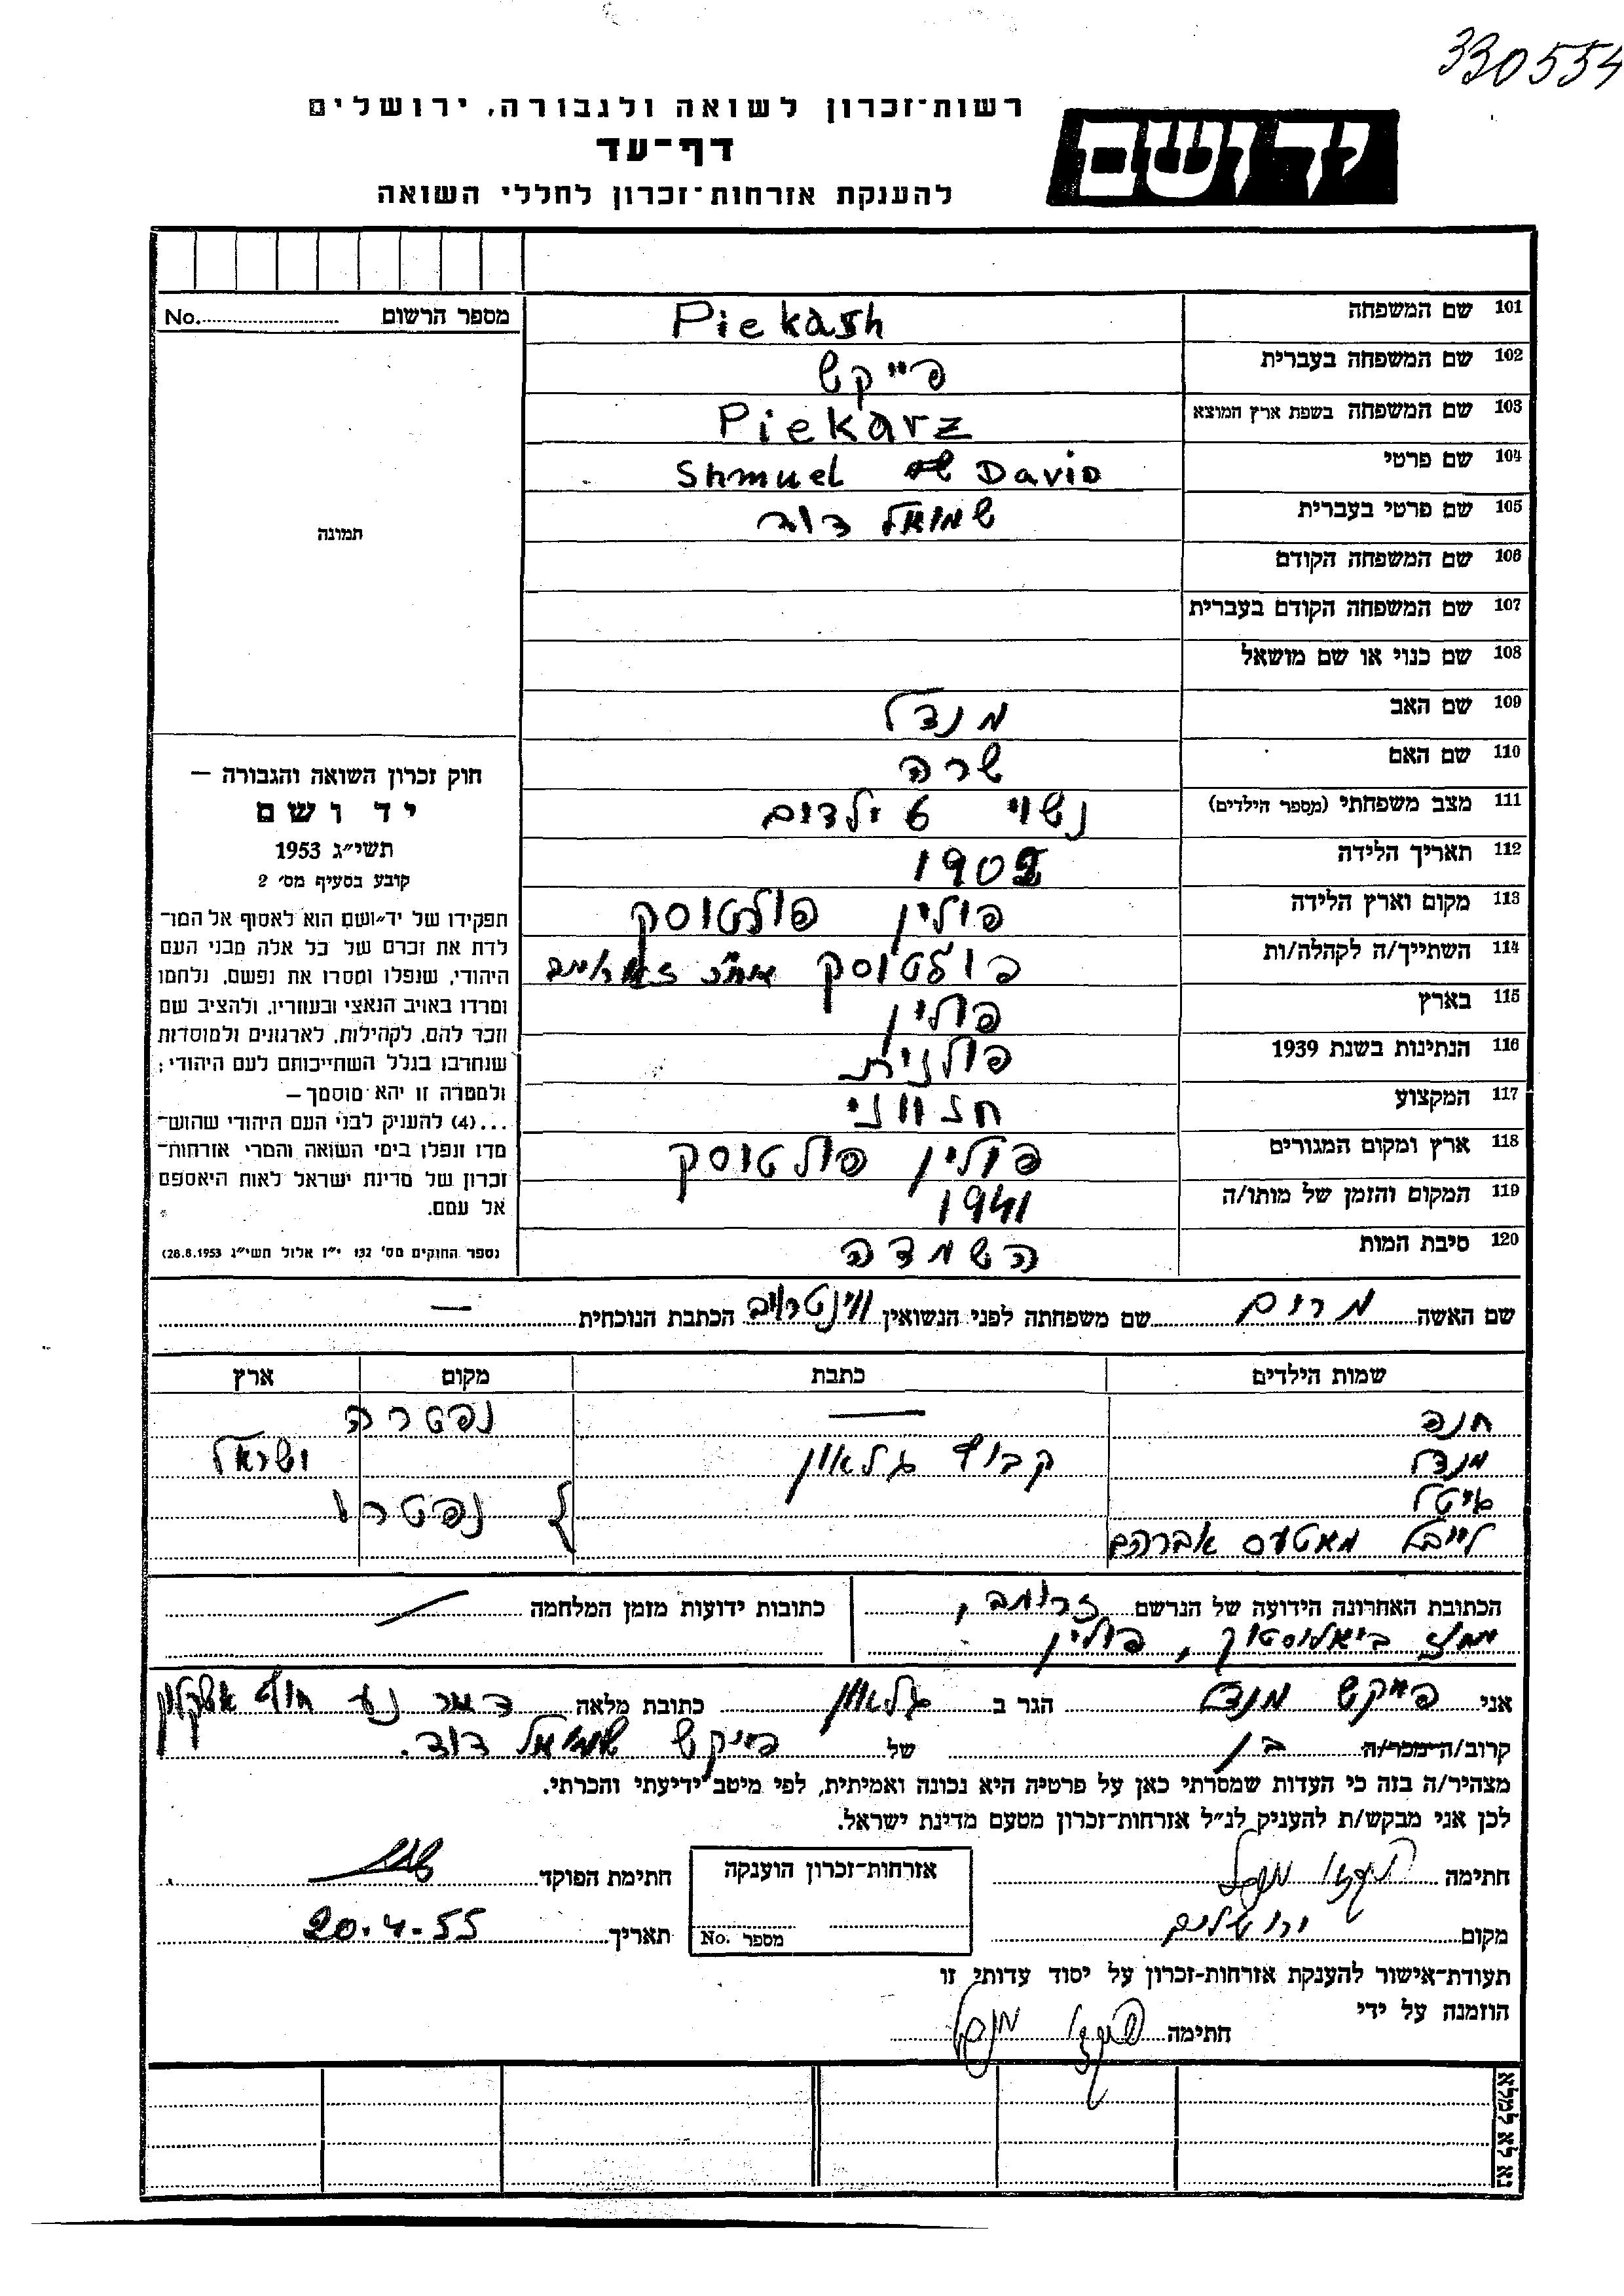 330554
רשות־זכרון לשואה ולגבורה, ירושלים
דף־עד
להענקת אזרחות־זכרון לחללי השואה
יד ושם
מספר הרשום No.
תמונה
101 שם המשפחה Piekash
102 שם המשפחה בעברית פייקש
103 שם המשפחה בשפת ארץ המוצא Piekarz
104 שם פרטי Shmuel David
105 שם פרטי בעברית שמואל דוד
106 שם המשפחה הקודם
107 שם המשפחה הקודם בעברית
108 שם כנוי או שם מושאל
109 שם האב מנדל
110 שם האם שרה
111 מצב משפחתי (מספר הילדים) נשוי 6 ילדים
112 תאריך הלידה 1902
113 מקום וארץ הלידה פולין פולטוסק
114 השתייך/ה לקהלה/ות פולטוסק אח"כ
115 בארץ פולין
116 הנתינות בשנת 1939 פולנית
117 המקצוע חנווני
118 ארץ ומקום המגורים פולין פולטוסק
119 המקום והזמן של מותו/ה 1941
120 סיבת המות השמדה
חוק זכרון השואה והגבורה —
יד ושם
תשי״ג 1953
קובע בסעיף מס׳ 2
תפקידו של יד־ושם הוא לאסוף אל המו־
לדת את זכרם של כל אלה מבני העם
היהודי, שנפלו ומסרו את נפשם, נלחמו
ומרדו באויב הנאצי ובעוזריו, ולהציב שם
וזכר להם, לקהילות, לארגונים ולמוסדות
שנחרבו בגלל השתייכותם לעם היהודי;
ולמטרה זו יהא מוסמך —
...(4) להעניק לבני העם היהודי שהוש־
מדו ונפלו בימי השואה והמרי אזרחות־
זכרון של מדינת ישראל לאות היאספם
אל עמם.
(ספר החוקים מס׳ 132 י״ז אלול תשי״ג 28.8.1953)
שם האשה מרים שם משפחתה לפני הנשואין ווינטרויב הכתבת הנוכחית —
שמות הילדים כתבת מקום ארץ
חנה — נפטרה
מנדל קבוץ גלאון ישראל
איטל
לייבל מאטעס אברהם } נפטרו
הכתובת האחרונה הידועה של הנרשם זרומב,
מחוז ביאלוסטוק, פולין
כתובות ידועות מזמן המלחמה
אני פייקש מנדל הגר ב גלאון כתובת מלאה דואר נע חוף אשקלון
קרוב/ה־מכר/ה בן של פייקש שמואל דוד.
מצהיר/ה בזה כי העדות שמסרתי כאן על פרטיה היא נכונה ואמיתית, לפי מיטב ידיעתי והכרתי.
לכן אני מבקש/ת להעניק לנ״ל אזרחות־זכרון מטעם מדינת ישראל.
חתימה פיקש מנדל
אזרחות־זכרון הוענקה
מספר No.
חתימת הפוקד
מקום ירושלים
תאריך 20.4.55
תעודת־אישור להענקת אזרחות־זכרון על יסוד עדותי זו
הוזמנה על ידי
חתימה פיקש מנדל
נא לא למלא